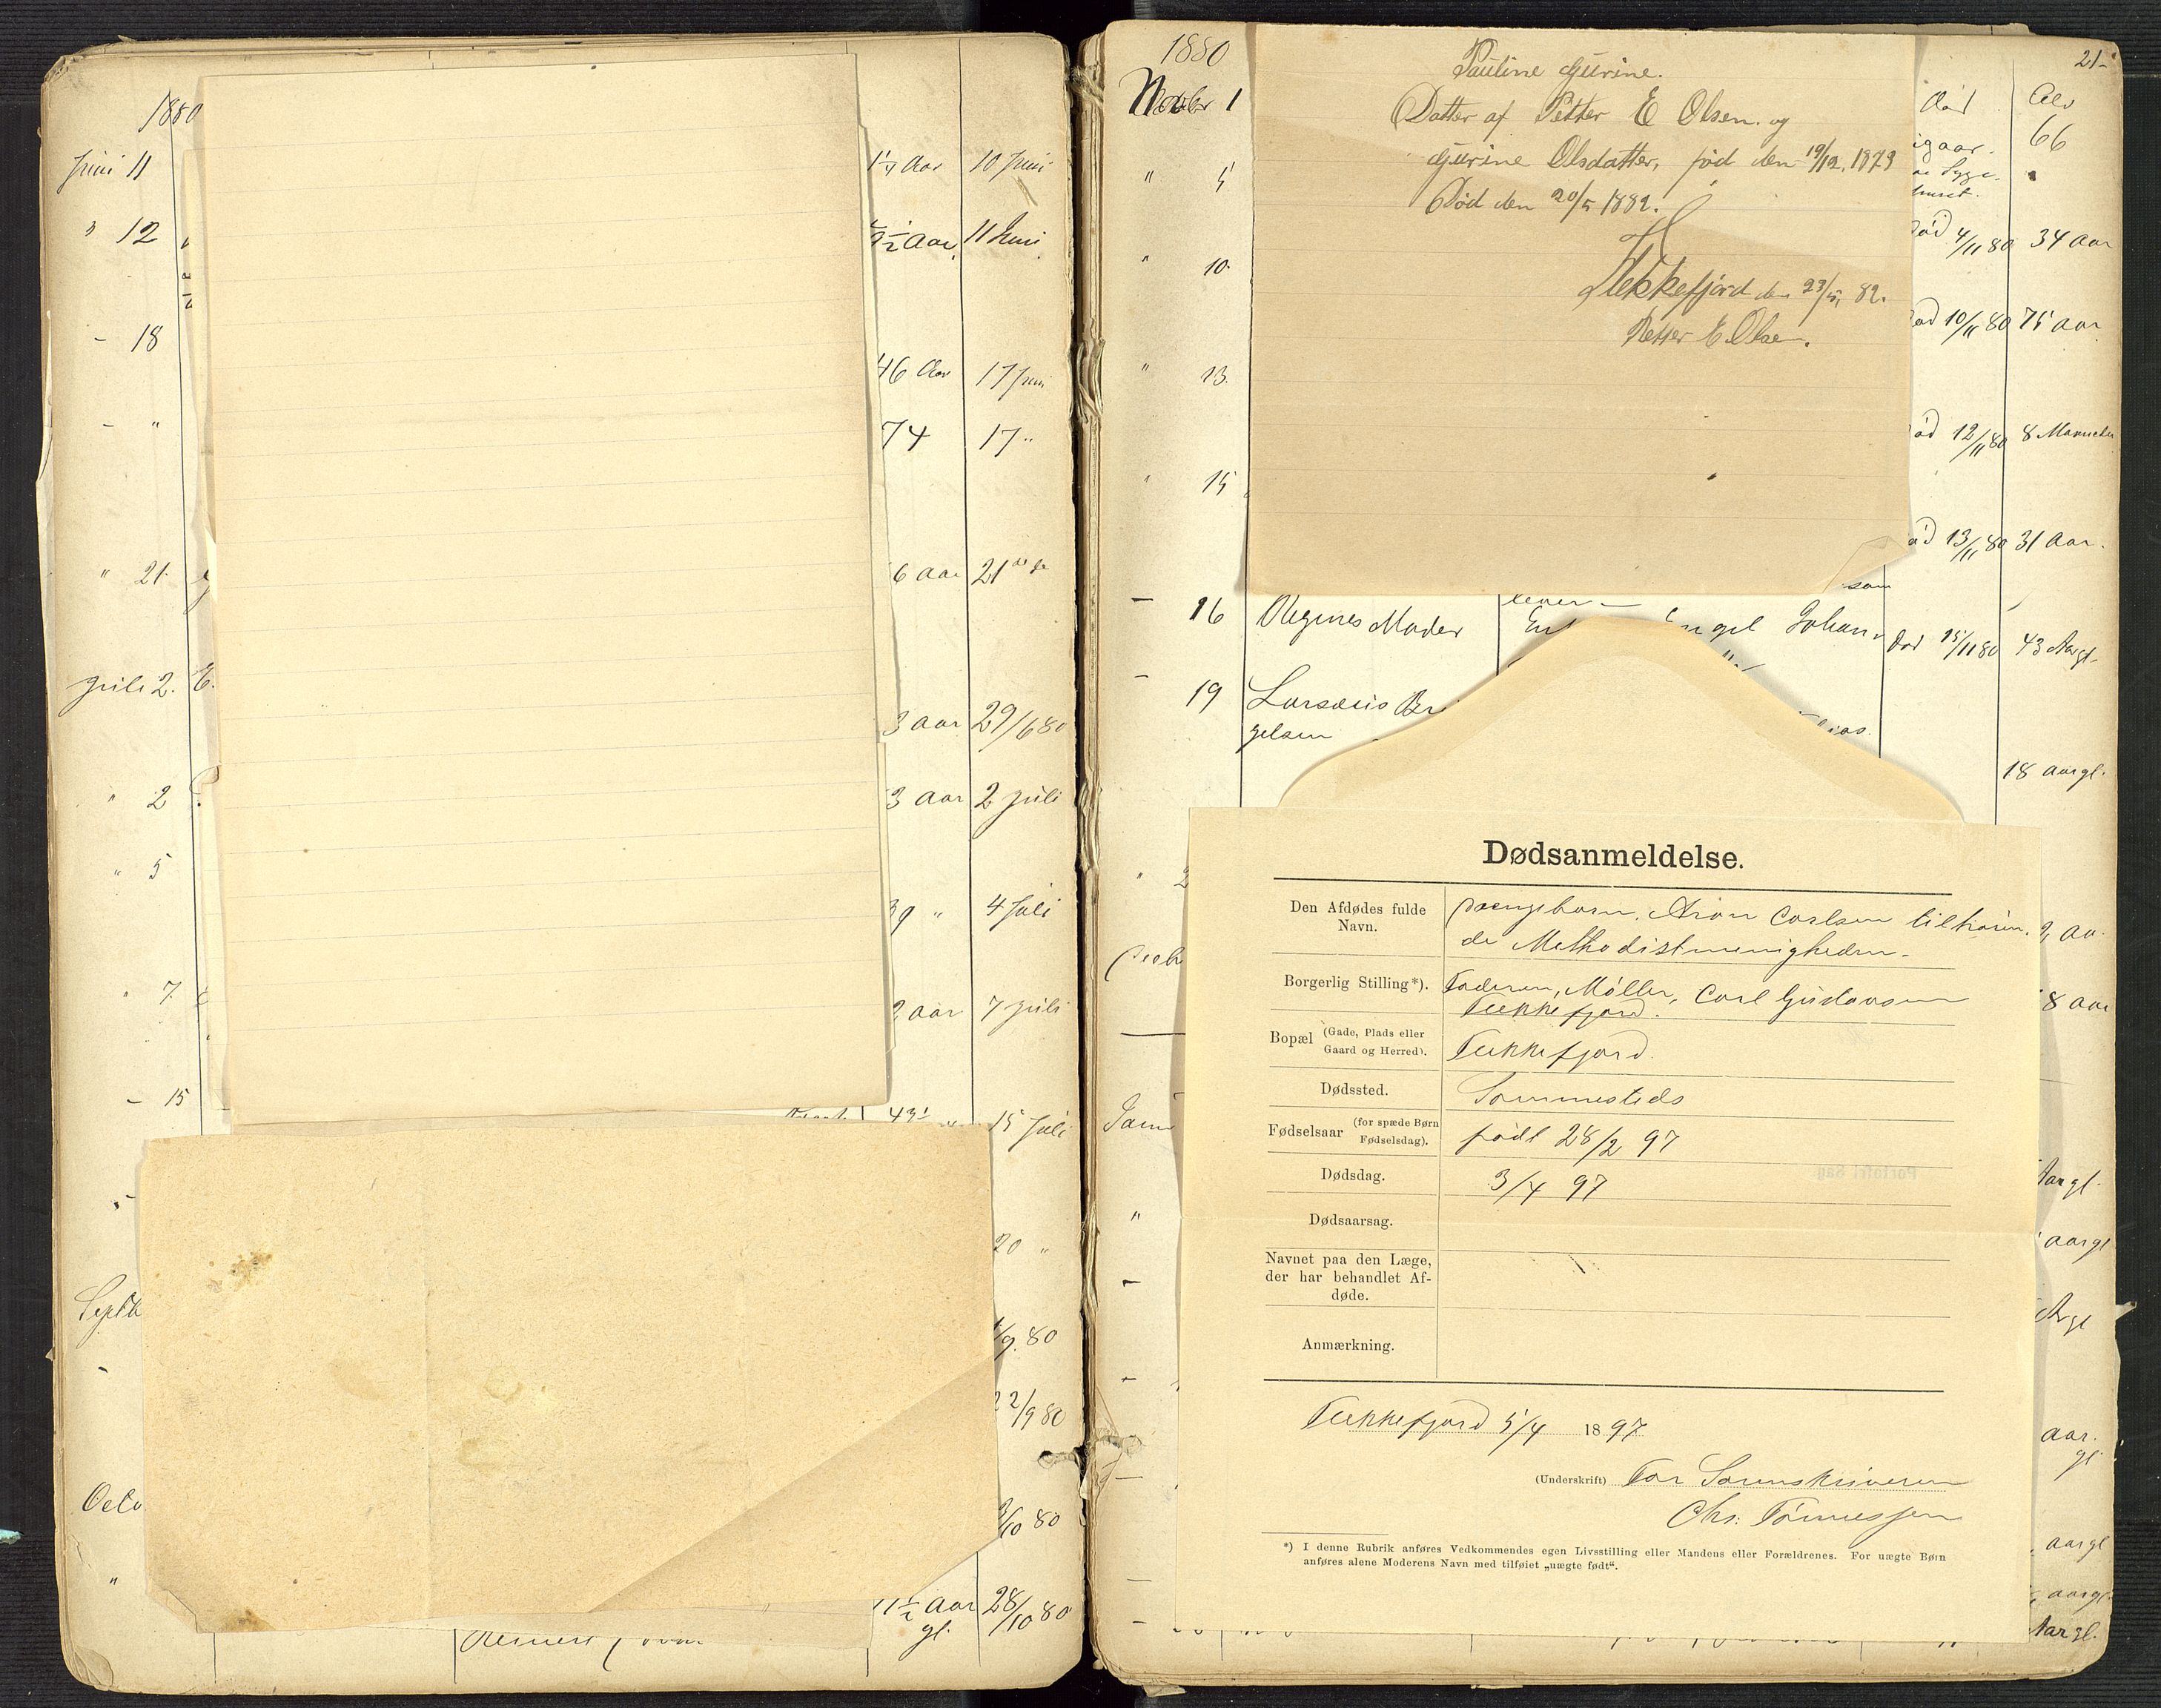 1880
Juni 11
1/4 Aar 10 Juni
" 12
1/2 Aar. 11 Juni
- 18
46 Aar 17 Juni
- "
74 17 "
" 21.
6 Aar 21
Juli 2. E.
3 aar 29/6 80
" 2
3 aar 2 Juli
" 5
39 " 4 Juli
" 7.
2 aar 7 Juli
- 15
43 15 Juli
20 "
Septb
/9 80
-
22/9 80
Octo
/10 80
"
11 1/2 Aar 28/10 80
gl.
1880
21-
Novbr 1
Død Alder
igaar. 66
" 5
Død 4/11 80 34 Aar
" 10.
Død 10/11 80 75 Aar
" 13.
Død 12/11 80 8 Maaneder
" 15
Død 13/11 80 31 Aar.
Pauline Gurine.
Datter af Petter E Olsen. og
Gurine Olsdatter, fød den 19/12, 1879
Død den 20/5 1882.
Flekkefjord den 23/5, 82.
Petter E. Olsen.
som
lever -
- 16 Regines Moder Engel Johan Død 15/11 80 43 Aargl.
- 19 Larsæus
gelsen
18 aargl.
Dødsanmeldelse.
Den Afdødes fulde
Navn.
Drengebarn, Aron Carlsen tilhøren
de Methodistmenigheden.
Borgerlig Stilling*).
Faderen, Møller, Carl Gustavsen
Flekkefjord.
Bopæl (Gade, Plads eller
Gaard og Herred).
Flekkefjord.
Dødssted.
Sammesteds
Fødselsaar (for spæde Børn
Fødselsdag).
født 28/2 97
Dødsdag.
3/4 97
Portofri Sag
Dødsaarsag.
Navnet paa den Læge,
der har behandlet Af-
døde.
Anmærkning.
Flekkefjord 5/4 1897
(Underskrift) For Sorenskriveren
Chr. Tönnessen
*) I denne Rubrik anføres Vedkommendes egen Livsstilling eller Mandens eller Forældrenes. For uægte Børn
anføres alene Moderens Navn med tilføiet „uægte født“.
8 aar
Aargl.
aargl
Argl
aar.
gl.
aargl
aargl.
Aargl.